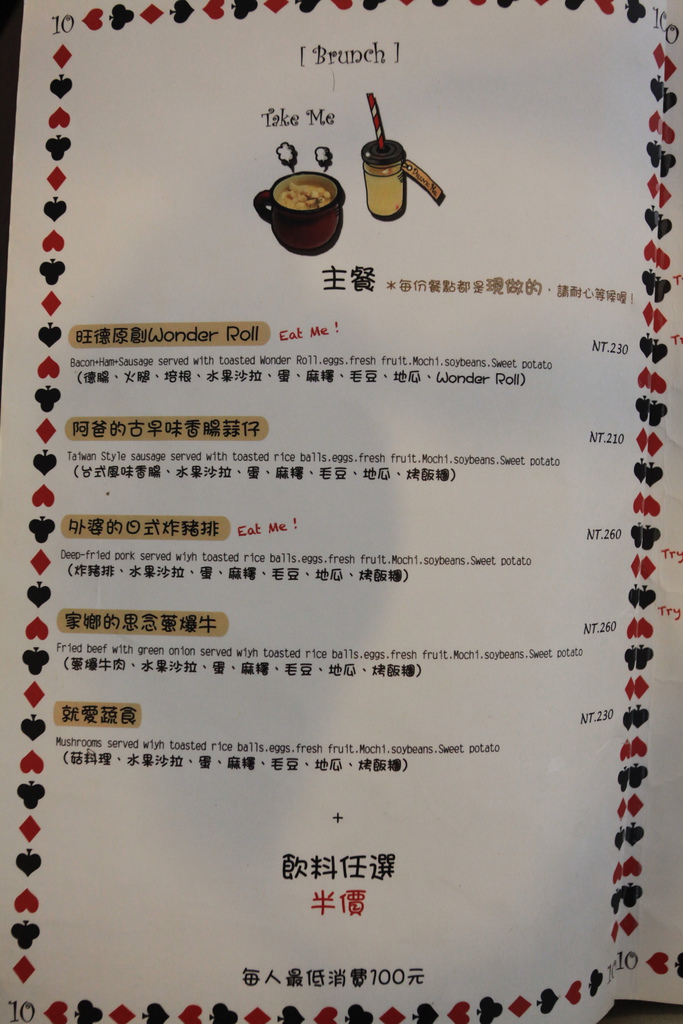 10
10
[ Brunch ]
Take Me
主餐 *每份餐點都是現做的，請耐心等候喔！
旺德原創Wonder Roll Eat Me !
NT.230
Bacon+Ham+Sausage served with toasted Wonder Roll.eggs.fresh fruit.Mochi.soybeans.Sweet potato
(德腸、火腿、培根、水果沙拉、蛋、麻糬、毛豆、地瓜、Wonder Roll)
阿爸的古早味香腸蒜仔
NT.210
Taiwan Style sausage served with toasted rice balls.eggs.fresh fruit.Mochi.soybeans.Sweet potato
(台式風味香腸、水果沙拉、蛋、麻糬、毛豆、地瓜、烤飯糰)
外婆的日式炸豬排 Eat Me !
NT.260
Deep-fried pork served wiyh toasted rice balls.eggs.fresh fruit.Mochi.soybeans.Sweet potato
(炸豬排、水果沙拉、蛋、麻糬、毛豆、地瓜、烤飯糰)
Try
家鄉的思念蔥爆牛
NT.260
Fried beef with green onion served wiyh toasted rice balls.eggs.fresh fruit.Mochi.soybeans.Sweet potato
(蔥爆牛肉、水果沙拉、蛋、麻糬、毛豆、地瓜、烤飯糰)
Try
就愛蔬食
NT.230
Mushrooms served wiyh toasted rice balls.eggs.fresh fruit.Mochi.soybeans.Sweet potato
(菇料理、水果沙拉、蛋、麻糬、毛豆、地瓜、烤飯糰)
+
飲料任選
半價
每人最低消費100元
10
10
10